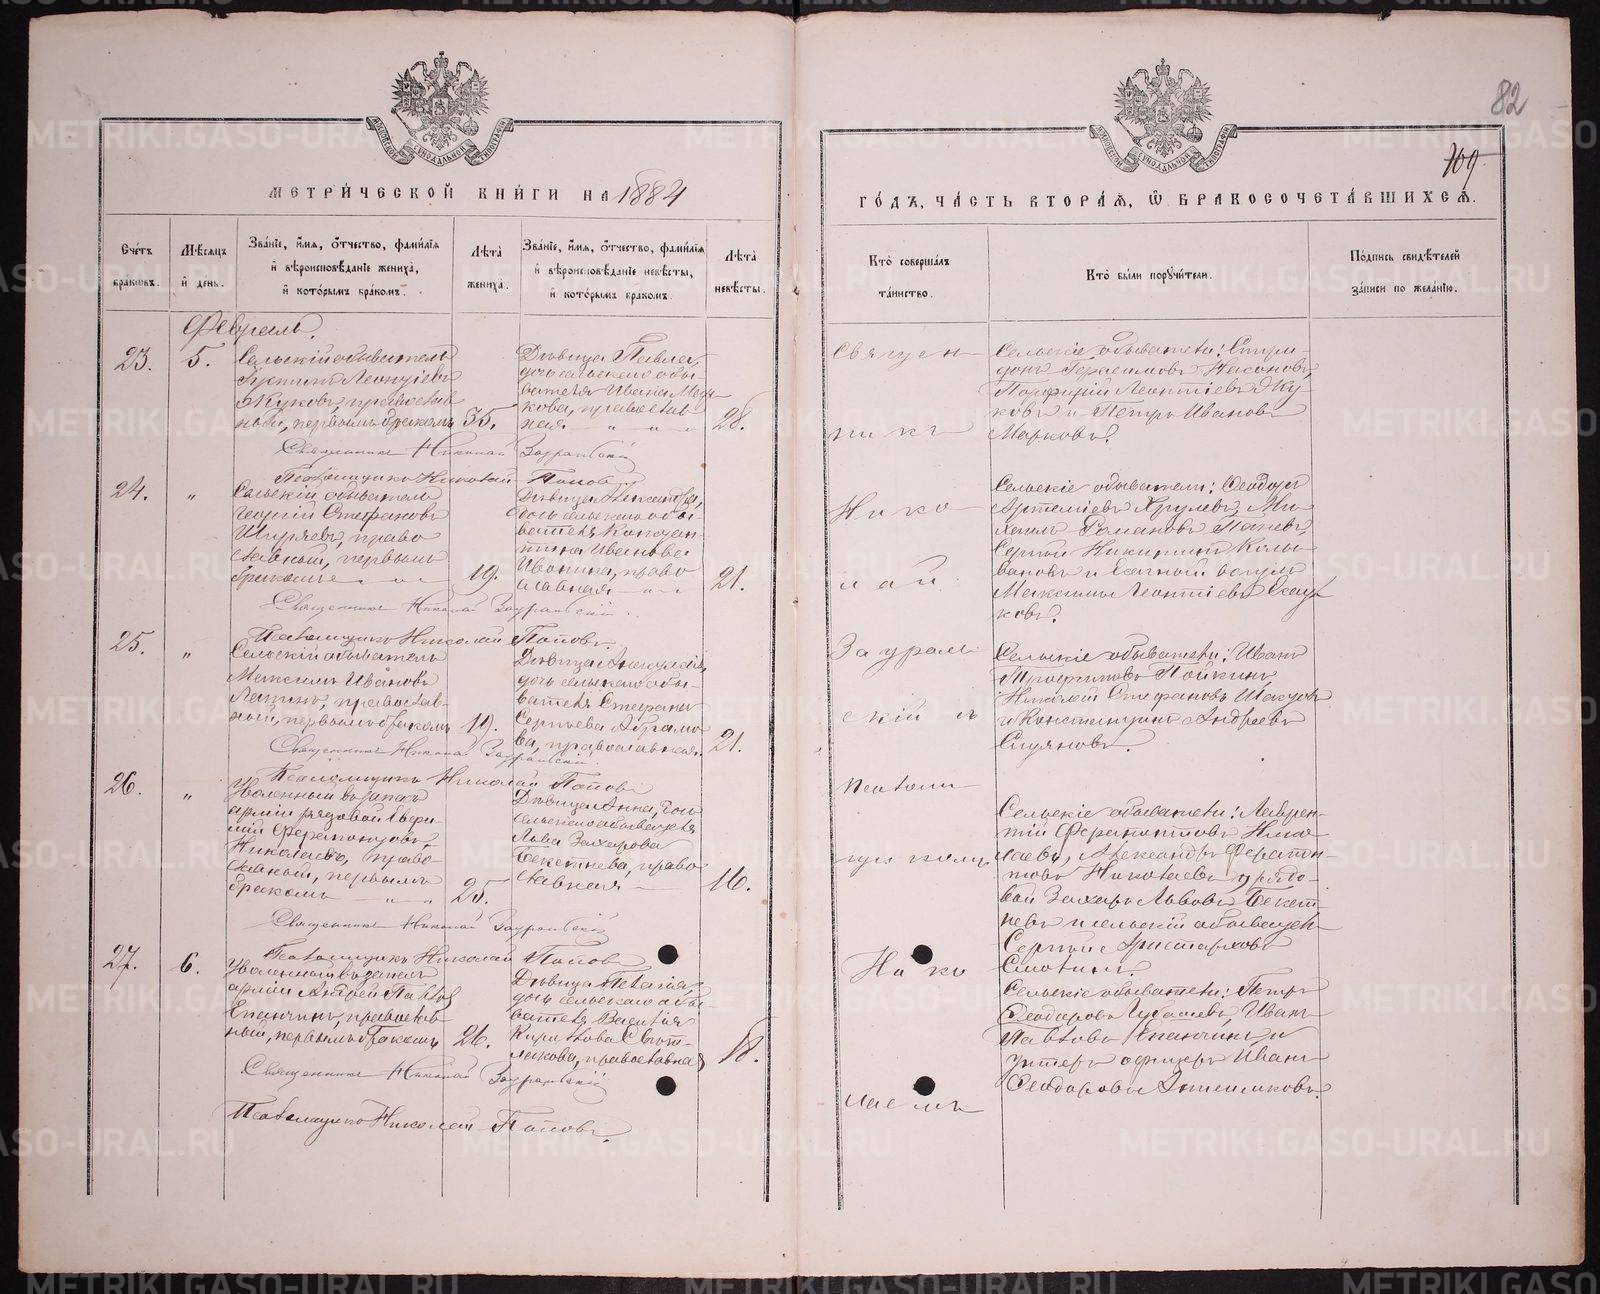 82
109
МОСКОВСКОЙ СѴНОДАЛЬНОЙ ТИПОГРАФІИ
МОСКОВСКОЙ СѴНОДАЛЬНОЙ ТИПОГРАФІИ
МЕТРИ́ЧЕСКОЙ КНИ́ГИ НА 1884
ГО́ДЪ, ЧА́СТЬ ВТОРА́Я, Ѡ БРАКОСОЧЕТА́ВШИХСЯ.
Сче́тъ бра́ковъ.
Мѣ́сяцъ и҆ де́нь.
Зва́нїе, и҆́мя, ѻ҆́тчество, фами́лїя и҆ вѣроисповѣ́данїе жениха̀, и҆ кото́рымъ бра́комъ.
Лѣ́та жениха̀.
Зва́нїе, и҆́мя, ѻ҆́тчество, фами́лїя и҆ вѣроисповѣ́данїе невѣ́сты, и҆ кото́рымъ бра́комъ.
Лѣ́та невѣ́сты.
Кто̀ соверша́лъ та́инство.
Кто̀ бы́ли поручи́тели.
По́дпись свидѣ́телей за́писи по жела́нїю.
Февраль.
23.
5.
Сельскій обыватель
Леонтіевъ
Жуковъ, православ
ный, первымъ бракомъ
35.
Дѣвица Павла,
дочь сельскаго обы-
вателя Ивана Мар-
кова, православ
ная " " "
28.
Священникъ Николай Зауральскій
Псаломщикъ Николай Поповъ
24.
"
Сельскій обыватель
Георгій Стефановъ
право
славный, первымъ
бракомъ " "
19.
Дѣвица Александра,
дочь сельскаго обы-
вателя Констан-
тина Иванова
Иванина, право
славная
21.
Священникъ Николай Зауральскій.
Псаломщикъ Николай Поповъ.
25.
"
Сельскій обыватель
Максимъ Ивановъ
православ-
ный, первымъ бракомъ
19.
Дѣвица
дочь сельскаго обы-
вателя Стефана
Сергѣева Абрамо-
ва, православная.
21.
Священникъ Николай Зауральскій.
Псаломщикъ Николай Поповъ
26.
"
Уволенный въ запасъ
арміи рядовой
мій Ферапонтовъ
Николаевъ, право-
славный, первымъ
бракомъ " "
25.
Дѣвица Анна, дочь
сельскаго обывателя
Льва Захарова
Бекетнева, право
славная
16.
Священникъ Николай Зауральскій
Псаломщикъ Николай Поповъ
27.
6.
Уволенный въ запасъ
арміи Андрей Павлов
Епанчинъ, православ-
ный, первымъ бракомъ
26.
Дѣвица Пелагія,
дочь сельскаго обы-
вателя Василія
Кирилова
православная
18.
Священникъ Николай Зауральскій
Псаломщикъ Николай Поповъ.
Священ
никъ
Нико
лай
Заураль
скій съ
псалом
щикомъ
Нико
лаемъ
Сельскіе обыватели: Спири-
донъ Герасимовъ Насоновъ,
Порфирій Леонтіевъ Жу-
ковъ и Петръ Ивановъ
Марковъ.
Сельскіе обыватели: Ѳеодоръ
Артеміевъ Хрулевъ, Ми-
хаилъ Романовъ Паневъ,
Сергѣй Никитинъ
вановъ и
Максимъ Леонтіевъ
ковъ.
Сельскіе обыватели: Иванъ
Трофимовъ Пайкинъ,
Николай Стефановъ
и Константинъ Андреевъ
Слуяновъ.
Сельскіе обыватели: Лаврен-
тій Ферапонтовъ Нико-
лаевъ, Александръ Ферапон-
товъ Николаевъ, рядо-
вой Захаръ Львовъ Бекет-
невъ и сельскій обыватель
Сергѣй Аристарховъ
Смотинъ.
Сельскіе обыватели: Петръ
Ѳеодоровъ Иванъ
Павловъ Епанчинъ и
унтеръ офицеръ Иванъ
Ѳеодоровъ
METRIKI.GASO-URAL.RU